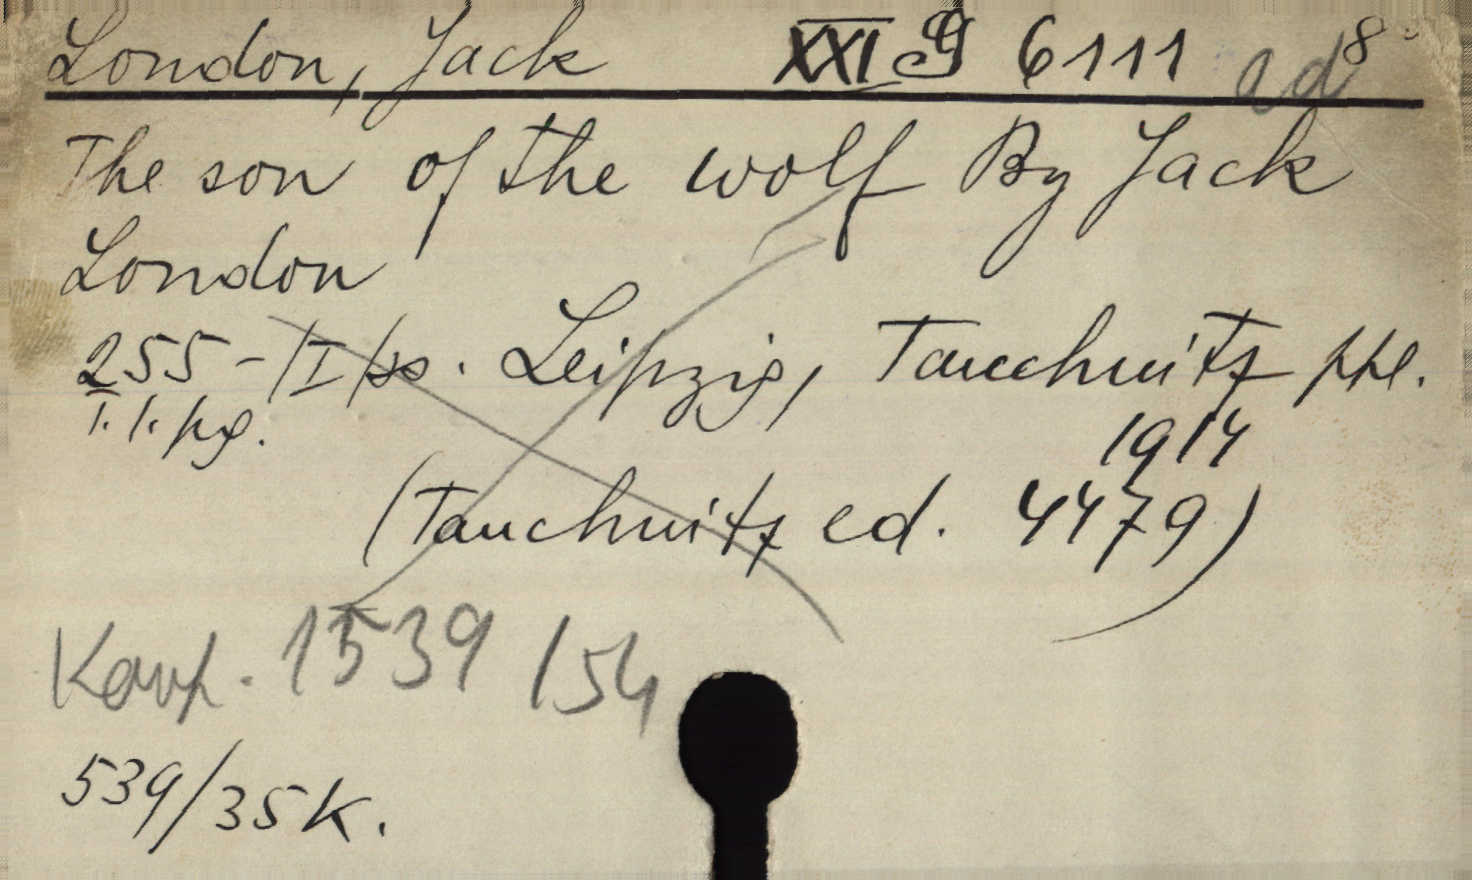 London, Jack XXI 6111 ad 8°
The son of the wolf By Jack
London
255 -/I/ss. Leipzig, Tauchnitz ppl.
1914
T. 1. pg.
(Tauchnitz ed. 4479)
1539 /54
539/35K.